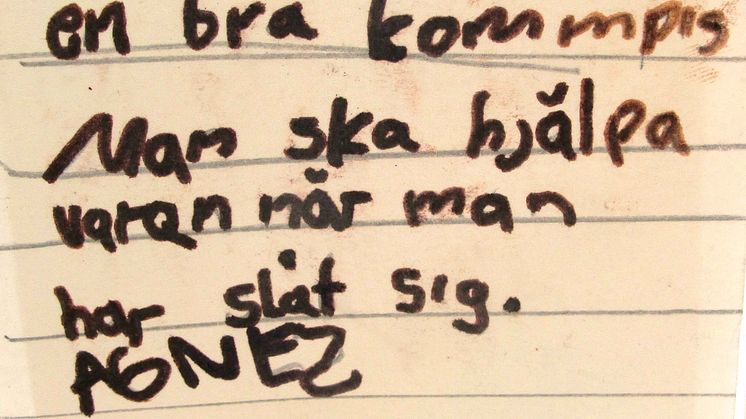 en bra kommmpis
Man ska hjälpa
varan när man
har slåt sig.
AGNEZ